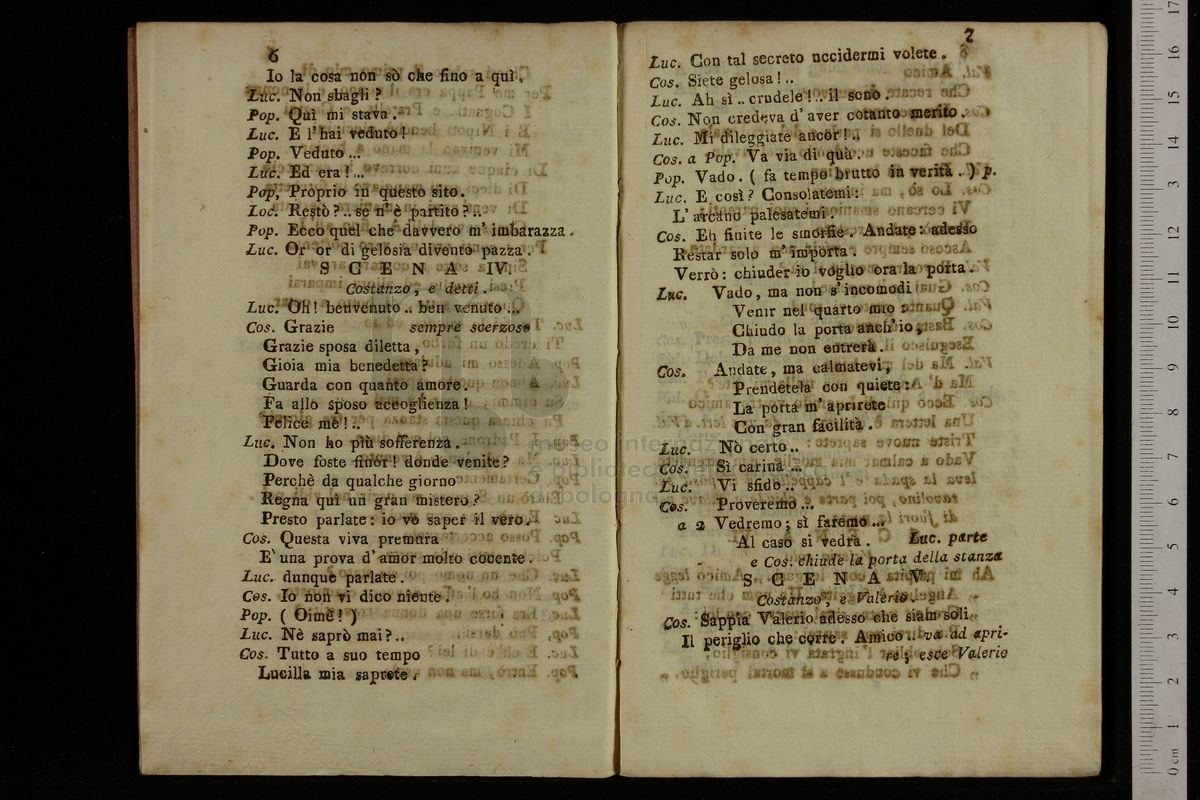 6
Io la cosa non sò che fino a quì.
Luc. Non sbagli?
Pop. Quì mi stava.
Luc. E l'hai veduto!
Pop. Veduto...
Luc. Ed era!...
Pop, Proprio in questo sito.
Loc. Restò?..se n'è partito?..
Pop. Ecco quel che davvero m'imbarazza.
Luc. Or or di gelosia divento pazza.
SCENA IV.
Costanzo, e detti.
Luc. Oh! benvenuto.. ben venuto...
Cos. Grazie sempre scerzoso
Grazie sposa diletta,
Gioia mia benedetta?
Guarda con quanto amore.
Fa allo sposo accoglienza!
Felice me!..
Luc. Non ho più sofferenza.
Dove foste finor! donde venite?
Perchè da qualche giorno
Regna quì un gran mistero?
Presto parlate: io vò saper il vero.
Cos. Questa viva premura
E' una prova d'amor molto cocente.
Luc. dunque parlate.
Cos. Io non vi dico niente.
Pop. (Oimè!)
Luc. Nè saprò mai?..
Cos. Tutto a suo tempo
Lucilla mia saprete.
7
Luc. Con tal secreto uccidermi volete.
Cos. Siete gelosa!..
Luc. Ah sì.. crudele!.. il sono.
Cos. Non credeva d'aver cotanto merito.
Luc. Mi dileggiate ancor!..
Cos. a Pop. Va via di quà.
Pop. Vado. (fa tempo brutto in verità.) p.
Luc. E così? Consolatemi:
L'arcano palesatemi.
Cos. Eh finite le smorfie. Andate: adesso
Restar solo m'importa.
Verrò: chiuder io voglio ora la porta.
Luc. Vado, ma non s'incomodi
Venir nel quarto mio
Chiudo la porta anch'io,
Da me non entrerà.
Cos. Andate, ma calmatevi,
Prendetela con quiete:
La porta m'aprirete
Con gran facilità.
Luc. Nò certo..
Cos. Sì carina...
Luc. Vi sfido..
Cos. Proveremo...
a 2 Vedremo; sì faremo...
Al caso si vedrà. Luc. parte
e Cos. chiude la porta della stanza
SCENA V.
Costanzo, e Valerio.
Cos. Sappia Valerio adesso che siam soli.
Il periglio che corre. Amico.. va ad apri-
re; esce Valerio
museo internazionale
e biblioteca della musica
di bologna